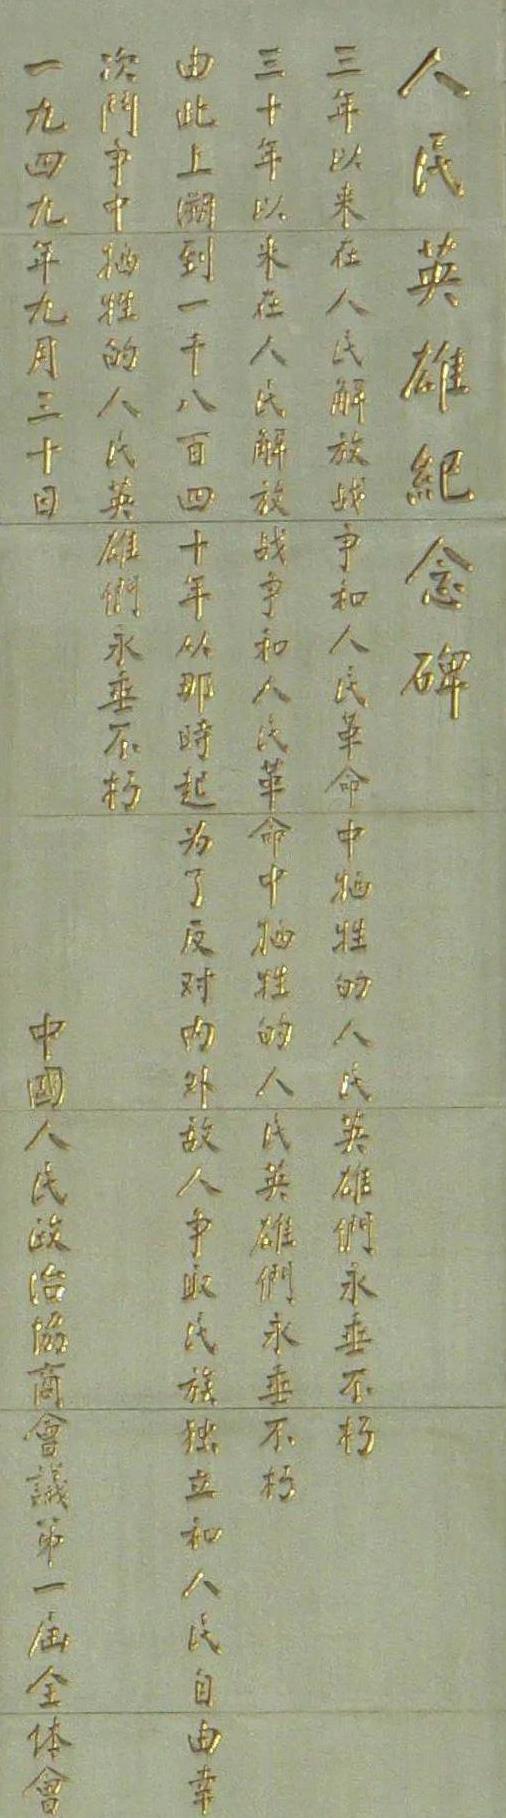 人民英雄紀念碑
三年以来在人民解放战争和人民革命中牺牲的人民英雄們永垂不朽
三十年以来在人民解放战争和人民革命中牺牲的人民英雄們永垂不朽
由此上溯到一千八百四十年从那時起为了反对内外敌人争取民族独立和人民自由幸
次鬥争中牺牲的人民英雄們永垂不朽
一九四九年九月三十日
中國人民政治協商會議第一届全体會